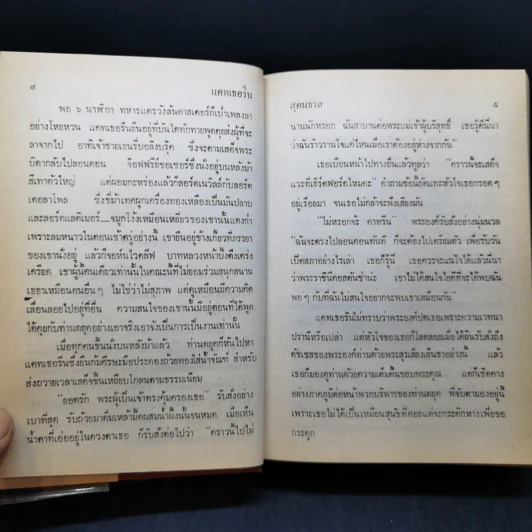 ๘ แคทเธอรีน
พอ ๖ นาฬิกา ทหารแตรวังลันคาสเตอร์ก็เป่าเพลงลา
อย่างโหยหวน แคทเธอรีนยืนอยู่ที่บันไดทักทายพูดคุยส่งผู้ที่จะ
ลาจากไป อาทิเจ้าชายเฮนรีบอลิงบรุ๊ค ซึ่งจะตามเสด็จพระ
บิดากลับไปลอนดอน จ๊อฟฟรีย์ชอเซอร์ซึ่งนั่งอยู่บนหลังม้า
สีเทาตัวใหญ่ แต่ผอมกะหร่องแล้วก็ลอร์ดเนวิลล์กับลอร์ด
เดอลาโพล ซึ่งขี่ม้าเทศผูกเครื่องทองเหลืองเป็นมันปลาบ
และลอร์ดแลติเมอร์
เพราะลมหนาวในตอนเช้าตรู่อย่างนี้ เขายืนอยู่ข้างเกี้ยวที่ภรรยา
ของเขานั่งอยู่ แล้วก็จอห์นไวคลิฟ บาทหลวงหน้าบึ้งตึงเคร่ง
เครียด เขาผู้นี้คนเดียวเท่านั้นในคณะนี้ที่ไม่ยอมร่วมสนุกสนาน
เฮฮาเหมือนคนอื่นๆ ไม่ใช่ว่าไม่สุภาพ แต่ดูเหมือนมีความคิด
เลื่อนลอยไปอยู่ที่อื่น ความสนใจของเขานั้นมีอยู่ตอนที่ได้พูด
ได้คุยกับท่านดยุคอย่างเอาจริงเอาจังเป็นการเป็นงานเท่านั้น
เมื่อทุกคนขึ้นนั่งบนหลังม้าแล้ว ท่านดยุคก็หันไปหา
แคทเธอรีนซึ่งยืนก้มศีรษะมือประคองถ้วยทองใส่น้ำจัณฑ์ สำหรับ
ส่งถวายเวลาเสด็จขึ้นเหยียบโกลนตามธรรมเนียม
"ยอดรัก พระผู้เป็นเจ้าทรงคุ้มครองเธอ" รับสั่งอย่าง
เบาที่สุด รับถ้วยมาดื่มเหล้ามี้ดผสมน้ำผึ้งนั้นจนหมด เมื่อเห็น
น้ำตาที่เอ่ออยู่ในดวงตาเธอ ก็รับสั่งต่อไปว่า "คราวนี้ไปไม่
สุคนธรส ๙
นานนักหรอก ฉันสาบานต่อพระแม่เจ้าผู้บริสุทธิ์ เธอรู้ดีนี่นา
ว่าฉันร้าวรานใจแค่ไหนเมื่อเราต้องอยู่ห่างจากกัน"
เธอเบือนหน้าไปทางอื่นแล้วทูลว่า "คราวนี้จะเสด็จ
แวะที่เฮิร์ตฟอร์ดไหมคะ" คำถามข้อนี้กัดแทะหัวใจเธอกรอดๆ
อยู่เรื่อยมา จนเธอไม่กล้าจะฟังเสียงมัน
"ไม่หรอกจ้ะ คาทรีน" พระองค์รับสั่งอย่างนุ่มนวล
"ฉันจะตรงไปลอนดอนทันที ก็จะต้องไปเตรียมตัว เพื่อรับวัน
เบ็ดสภาอย่างไรเล่า เธอก็รู้นี่ เธอควรจะแน่ใจได้แล้วนี่นา
ว่าพระราชินีคอสตันซ่าน่ะ เขาไม่ได้สนใจไยดีที่จะได้พบฉัน
พอๆ กับที่ฉันไม่สนใจอยากจะพบเขาเหมือนกัน"
แคทเธอรีนไม่ทราบว่าพระองค์ปดเธอเพราะความเวทนา
ปรานีหรือเปล่า แต่หัวใจของเธอก็โลดลอยเมื่อได้ยินรับสั่งถึง
ดัชเชสของพระองค์ท่านด้วยพระสุรเสียงเย็นชาอย่างนี้ แล้ว
เธอก็มองดูท่านด้วยความเต็มตื้นขอบพระคุณ แต่ก็เชิดคาง
อย่างภาคภูมิต่อหน้าพวกบริการของท่านดยุค ที่จับตามองอยู่นี้
เพราะเธอไม่ได้เป็นเหมือนสุนัขที่คอยแต่จะกระดิกหางเพื่อขอ
กระดูก